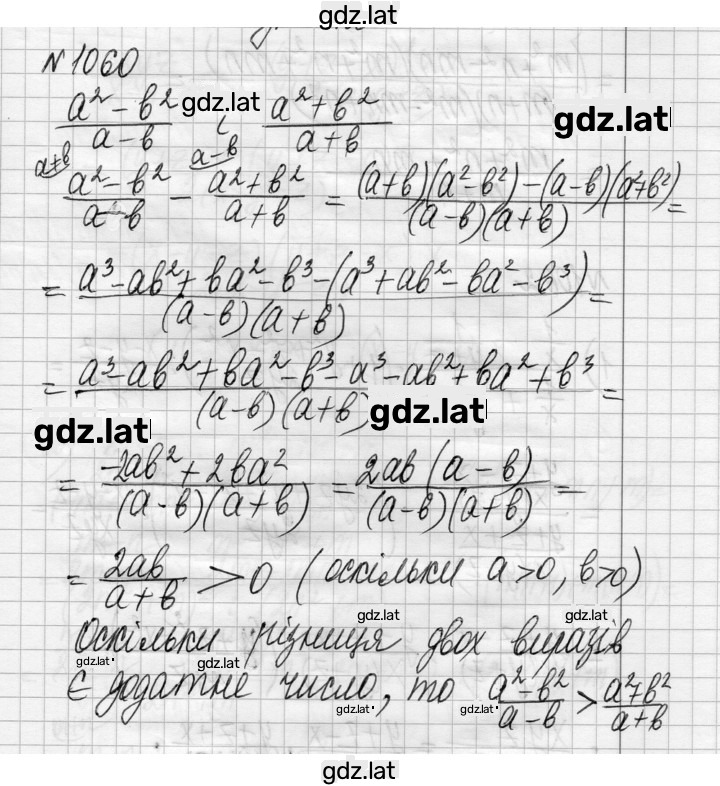 gdz.lat
№ 1060
(a² – b²)/(a – b) gdz.lat і (a² + b²)/(a + b) gdz.lat
(a² – b²)/(a – b) ^(a+b) – (a² + b²)/(a + b) ^(a–b) = ((a + b)(a² – b²) – (a – b)(a² + b²))/((a – b)(a + b)) =
= (a³ – ab² + ba² – b³ – (a³ + ab² – ba² – b³))/((a – b)(a + b)) =
= (a³ – ab² + ba² – b³ – a³ – ab² + ba² + b³)/((a – b)(a + b)) =
gdz.lat gdz.lat
= (–2ab² + 2ba²)/((a – b)(a + b)) = 2ab(a – b)/((a – b)(a + b)) =
= 2ab/(a + b) > 0 (оскільки a > 0, b > 0)
gdz.lat gdz.lat
Оскільки різниця двох виразів
gdz.lat gdz.lat
є додатне число, то (a² – b²)/(a – b) > (a² + b²)/(a + b)
gdz.lat gdz.lat gdz.lat
gdz.lat